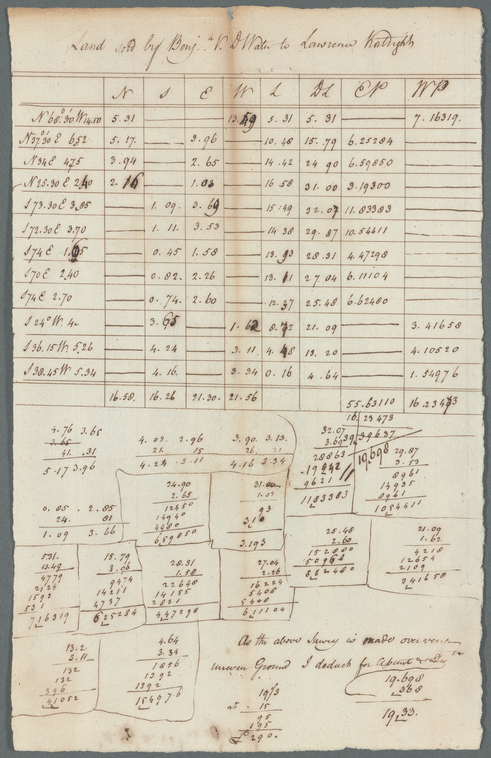 Land sold by Benj. V. D Water to Lawrence
N S E W L DL EP WP
N 68°.30' W 14.50 5.31 13.49 5.31 5.31 7.16319.
N 37.30 E 6.52 5.17. 3.96 10.48 15.79 6.25284
N 34 E 4.75 3.94 2.65 14.42 24.90 6.59850
N 25.30 E 2.40 2.16 1.03 16.58 31.00 3.19300
S 73.30 E 3.85 1.09. 3.69 15.49 32.07 11.83383
S 72.30 E 3.70 1.11. 3.53 14.38 29.87 10.54411
S 74 E 1.65 0.45 1.58 13.93 28.31 4.47298
S 70 E 2.40 0.82. 2.26 13.11 27.04 6.11104
S 74 E 2.70 0.74. 2.60 12.37 25.48 6.62480
S 24° W. 4. 3.65 1.62 8.72 21.09 3.41658
S 36.15 W. 5.26 4.24 3.11 4.48 13.20 4.10520
S 38.45 W 5.34 4.16. 3.34 0.16 4.64 1.54976
16.58. 16.26 21.30. 21.56 55.63110 16.23473
16.23473
39.39637
19,698
4.76 3.65
3.65
41 .31
5.17 3.96
4.03. 2.96
21. 15
4.24 3.11
3.90. 3.13.
26. 21
4.16 3.34
32.07
3.69
28863
19242
9621
1183383
29.87
3.53
8961
14935
8961
1054411
0.85. 2.85
24. 81
1.09 3.66
24.90
2.65
12450
14940
4980
659850
31.00
1.03
93
310
3.193
25.48
2.60
152880
5096
662480
21.09
1.62
4218
12654
2109
341658
531.
13.49
4779
2124
1593
531
716319
15.79
3.96
9474
14211
4737
625284
28.31
1.58
22648
14155
2831
447290
27.04
2.26
16224
5408
5408
611104
13.2
3.11
132
132
396
41052
4.64
3.34
1856
1392
1392
154976
As the above Survey is made over
uneven Ground I deduct for
19.698
.368
19.33.
19/3
at 15
95
195
£ 290.